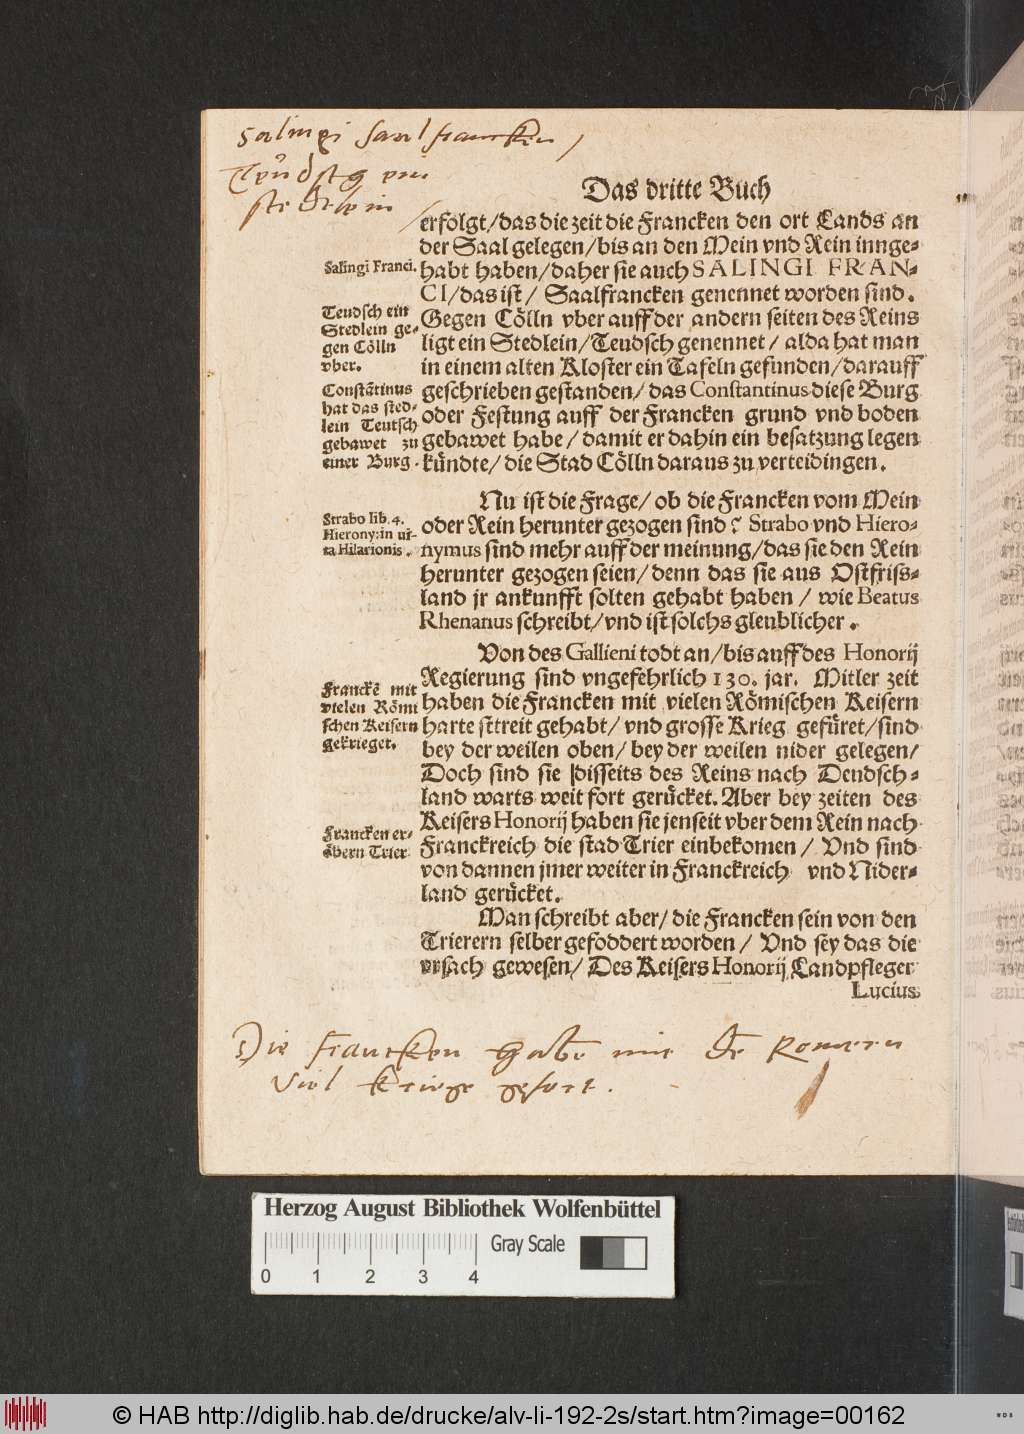 Salingi Saalfrancken /
Teudsch ein
stedelein /
Das dritte Buch
erfolgt/das die zeit die Francken den ort Lands an
der Saal gelegen/bis an den Mein vnd Rein innge-
Salingi Franci.
habt haben/daher sie auch SALINGI FRAN-
CI/das ist/ Saalfrancken genennet worden sind.
Teudsch ein
Stedlein ge-
gen Cölln
vber.
Gegen Cölln vber auff der andern seiten des Reins
ligt ein Stedlein/Teudsch genennet/ alda hat man
in einem alten Kloster ein Tafeln gefunden/darauff
Constãtinus
hat das sted-
lein Teutsch
gebawet zu
einer Burg.
geschrieben gestanden/das Constantinus diese Burg
oder Festung auff der Francken grund vnd boden
gebawet habe/damit er dahin ein besatzung legen
kündte/die Stad Cölln daraus zu verteidingen.
Nu ist die Frage/ ob die Francken vom Mein
Strabo lib. 4.
Hierony: in ui-
ta Hilarionis.
oder Rein herunter gezogen sind? Strabo vnd Hiero-
nymus sind mehr auff der meinung/das sie den Rein
herunter gezogen seien/denn das sie aus Ostfriss-
land jr ankunfft solten gehabt haben / wie Beatus
Rhenanus schreibt/vnd ist solchs gleublicher.
Von des Gallieni todt an/bis auff des Honorij
Regierung sind vngefehrlich 130. jar. Mitler zeit
Franckẽ mit
vielen Römi
schen Keisern
gekrieget.
haben die Francken mit vielen Römischen Keisern
harte sttreit gehabt/ vnd grosse Krieg gefüret/sind
bey der weilen oben/ bey der weilen nider gelegen/
Doch sind sie disseits des Reins nach Dendsch-
land warts weit fort gerücket. Aber bey zeiten des
Keisers Honorij haben sie jenseit vber dem Rein nach
Francken er-
öbern Trier.
Franckreich die stad Trier einbekomen/ Vnd sind
von dannen jmer weiter in Franckreich vnd Nider-
land gerücket.
Man schreibt aber/die Francken sein von den
Trierern selber gefoddert worden/ Vnd sey das die
vrsach gewesen/ Des Keisers Honorij Landpfleger
Lucius
Die Francken habẽ mit dẽ Romern
viel kriege gefort.
Herzog August Bibliothek Wolfenbüttel
Gray Scale
0 1 2 3 4
© HAB http://diglib.hab.de/drucke/alv-li-192-2s/start.htm?image=00162